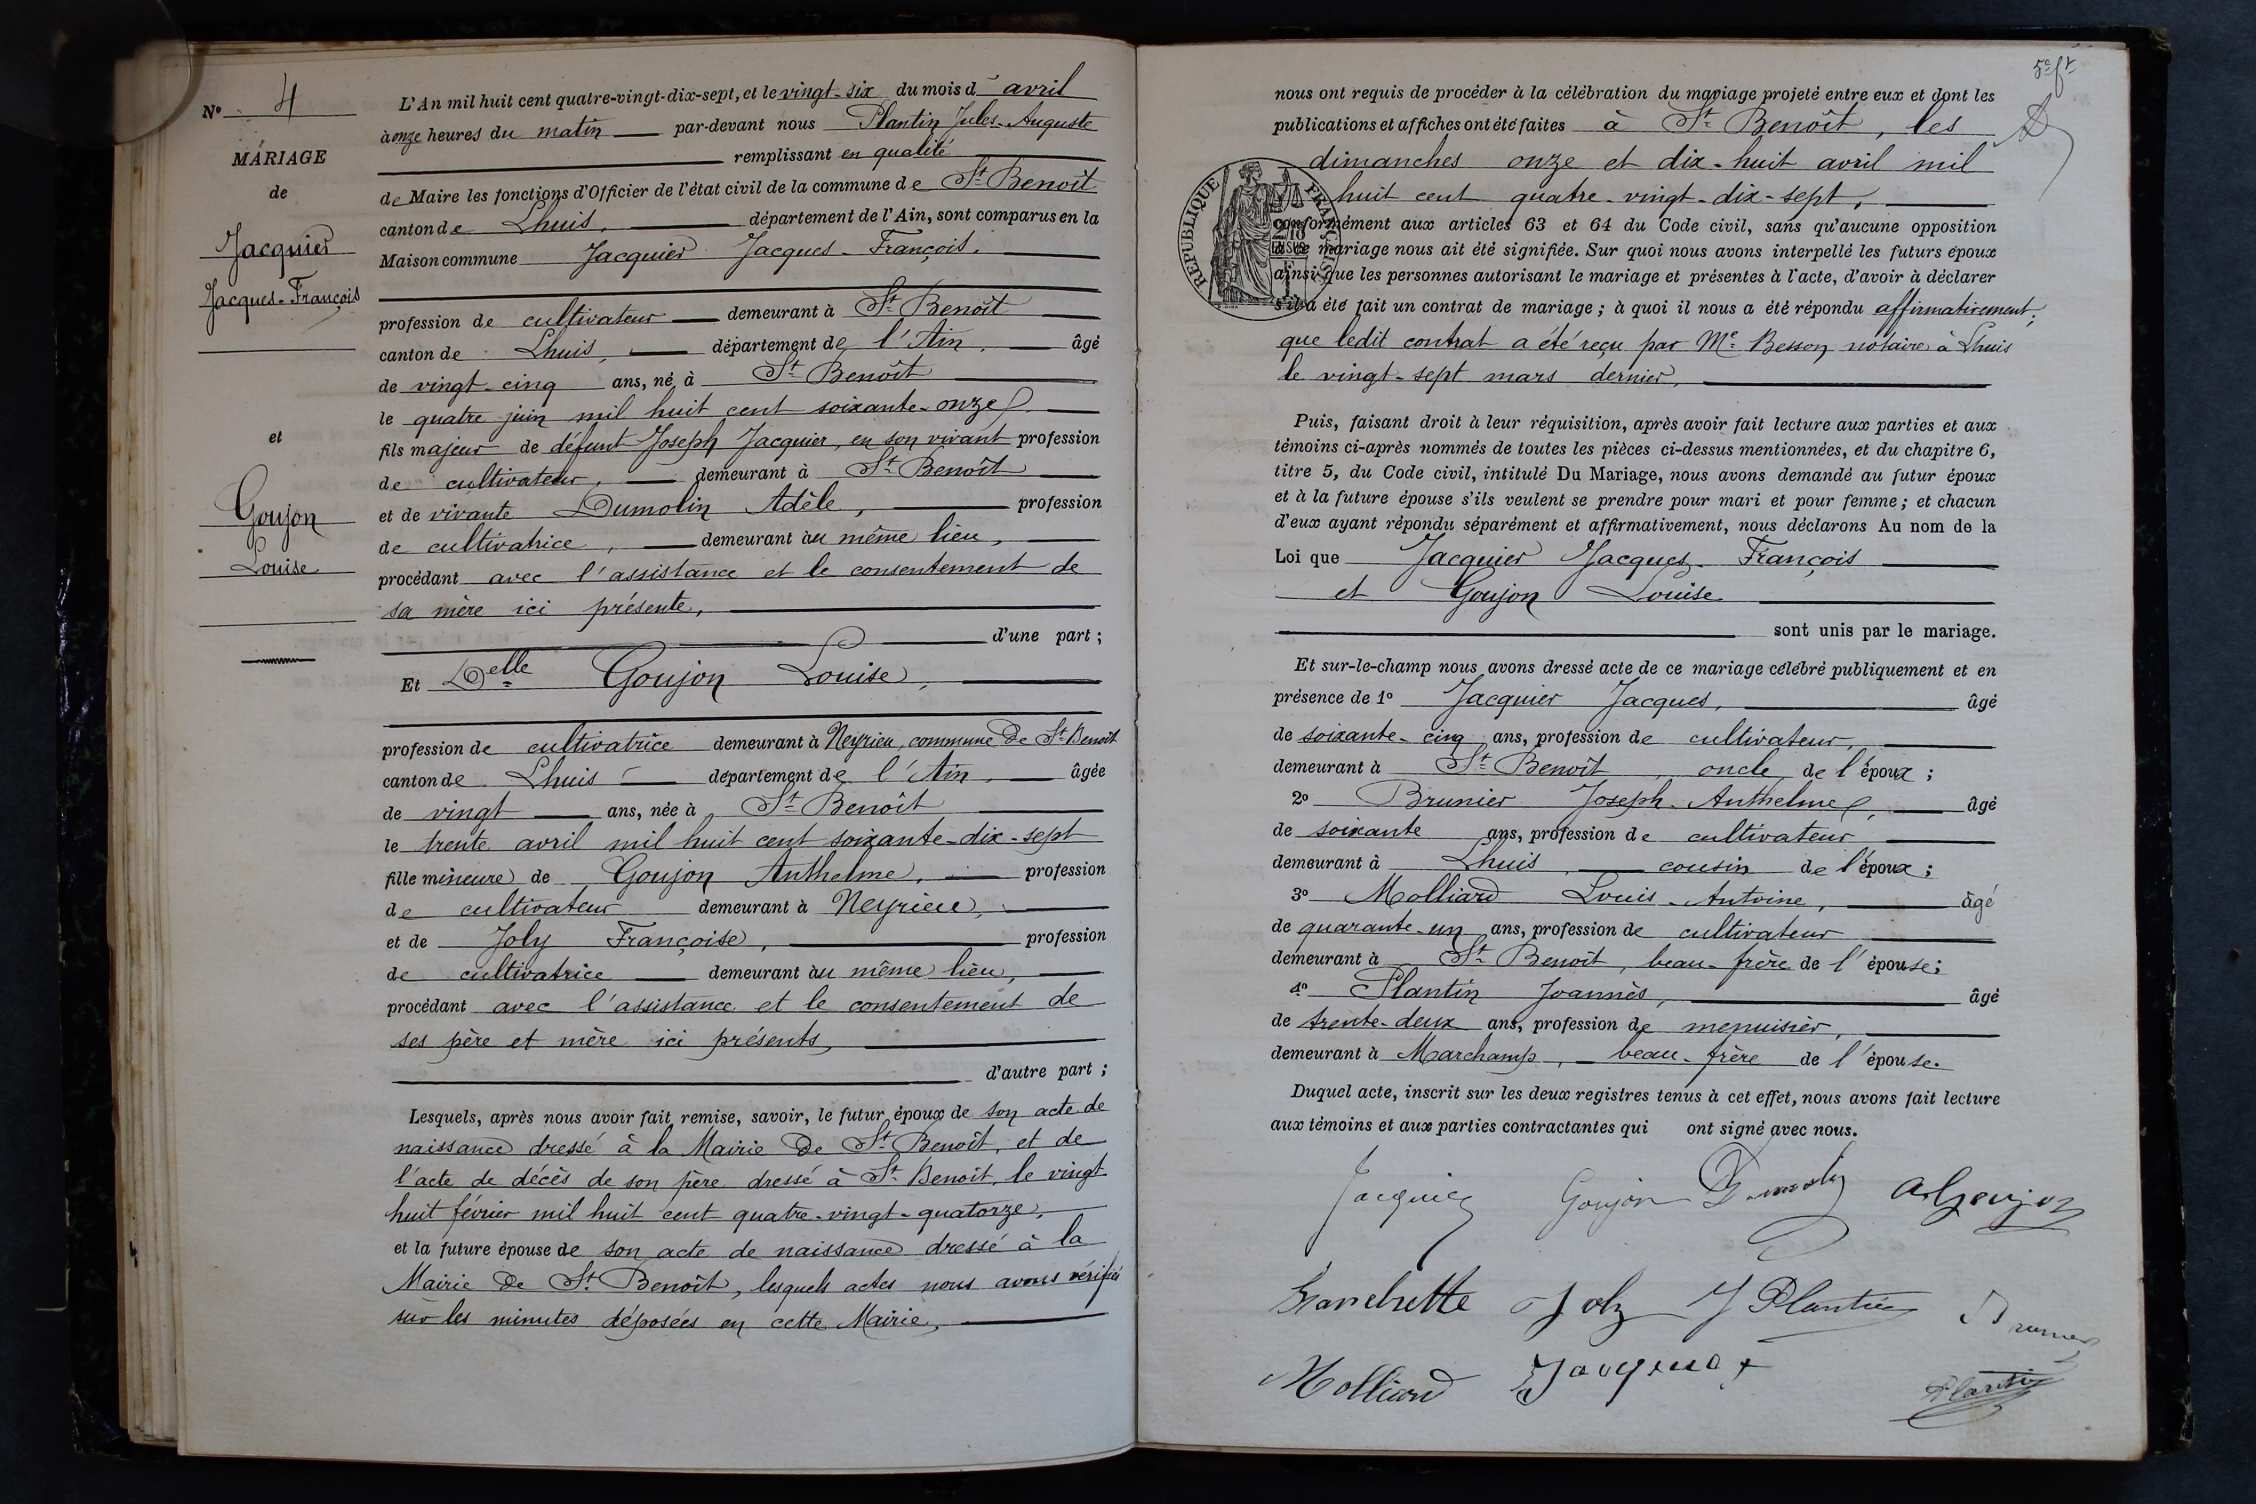 N° 4
MARIAGE
de
Jacquier
Jacques-François
et
Goujon
Louise
L'An mil huit cent quatre-vingt-dix-sept, et le vingt-six du mois d' avril
à onze heures du matin par-devant nous Plantin Jules-Auguste
remplissant en qualité
de Maire les fonctions d'Officier de l'état civil de la commune de St Benoît
canton de Lhuis, département de l'Ain, sont comparus en la
Maison commune Jacquier Jacques-François,
profession de cultivateur demeurant à St Benoît
canton de Lhuis, département de l'Ain, âgé
de vingt-cinq ans, né à St Benoît
le quatre juin mil huit cent soixante-onze
fils majeur de défunt Joseph Jacquier, en son vivant profession
de cultivateur, demeurant à St Benoît
et de vivante Dumolin Adèle, profession
de cultivatrice, demeurant au même lieu,
procédant avec l'assistance et le consentement de
sa mère ici présente,
d'une part;
Et Delle Goujon Louise,
profession de cultivatrice demeurant à Neyrieu, commune de St Benoît
canton de Lhuis département de l'Ain, âgée
de vingt ans, née à St Benoît
le trente avril mil huit cent soixante-dix-sept
fille mineure de Goujon Anthelme, profession
de cultivateur demeurant à Neyrieu,
et de Joly Françoise, profession
de cultivatrice demeurant au même lieu,
procédant avec l'assistance et le consentement de
ses père et mère ici présents,
d'autre part;
Lesquels, après nous avoir fait remise, savoir, le futur époux de son acte de
naissance dressé à la Mairie de St Benoît, et de
l'acte de décès de son père dressé à St Benoît, le vingt
huit février mil huit cent quatre-vingt-quatorze,
et la future épouse de son acte de naissance dressé à la
Mairie de St Benoît, lesquels actes nous avons vérifiés
sur les minutes déposées en cette Mairie,
nous ont requis de procéder à la célébration du mariage projeté entre eux et dont les
publications et affiches ont été faites à St Benoît, les
dimanches onze et dix-huit avril mil
huit cent quatre-vingt-dix-sept,
RÉPUBLIQUE FRANÇAISE
conformément aux articles 63 et 64 du Code civil, sans qu'aucune opposition
à ce mariage nous ait été signifiée. Sur quoi nous avons interpellé les futurs époux
ainsi que les personnes autorisant le mariage et présentes à l'acte, d'avoir à déclarer
s'il a été fait un contrat de mariage; à quoi il nous a été répondu affirmativement;
que ledit contrat a été reçu par Me Besson notaire à Lhuis
le vingt-sept mars dernier,
Puis, faisant droit à leur réquisition, après avoir fait lecture aux parties et aux
témoins ci-après nommés de toutes les pièces ci-dessus mentionnées, et du chapitre 6,
titre 5, du Code civil, intitulé Du Mariage, nous avons demandé au futur époux
et à la future épouse s'ils veulent se prendre pour mari et pour femme; et chacun
d'eux ayant répondu séparément et affirmativement, nous déclarons Au nom de la
Loi que Jacquier Jacques-François
et Goujon Louise
sont unis par le mariage.
Et sur-le-champ nous avons dressé acte de ce mariage célébré publiquement et en
présence de 1° Jacquier Jacques, âgé
de soixante-cinq ans, profession de cultivateur,
demeurant à St Benoît, oncle de l'époux;
2° Brunier Joseph-Anthelme, âgé
de soixante ans, profession de cultivateur
demeurant à Lhuis, cousin de l'époux;
3° Molliard Louis-Antoine, âgé
de quarante-un ans, profession de cultivateur
demeurant à St Benoît, beau-frère de l'épouse;
4° Plantin Joannès, âgé
de trente-deux ans, profession de menuisier,
demeurant à Marchamp, beau-frère de l'épouse.
Duquel acte, inscrit sur les deux registres tenus à cet effet, nous avons fait lecture
aux témoins et aux parties contractantes qui ont signé avec nous.
Jacquier Goujon Dumolin A. Goujon
Joly J Plantin Brunier
Molliard Jacquier
Plantin